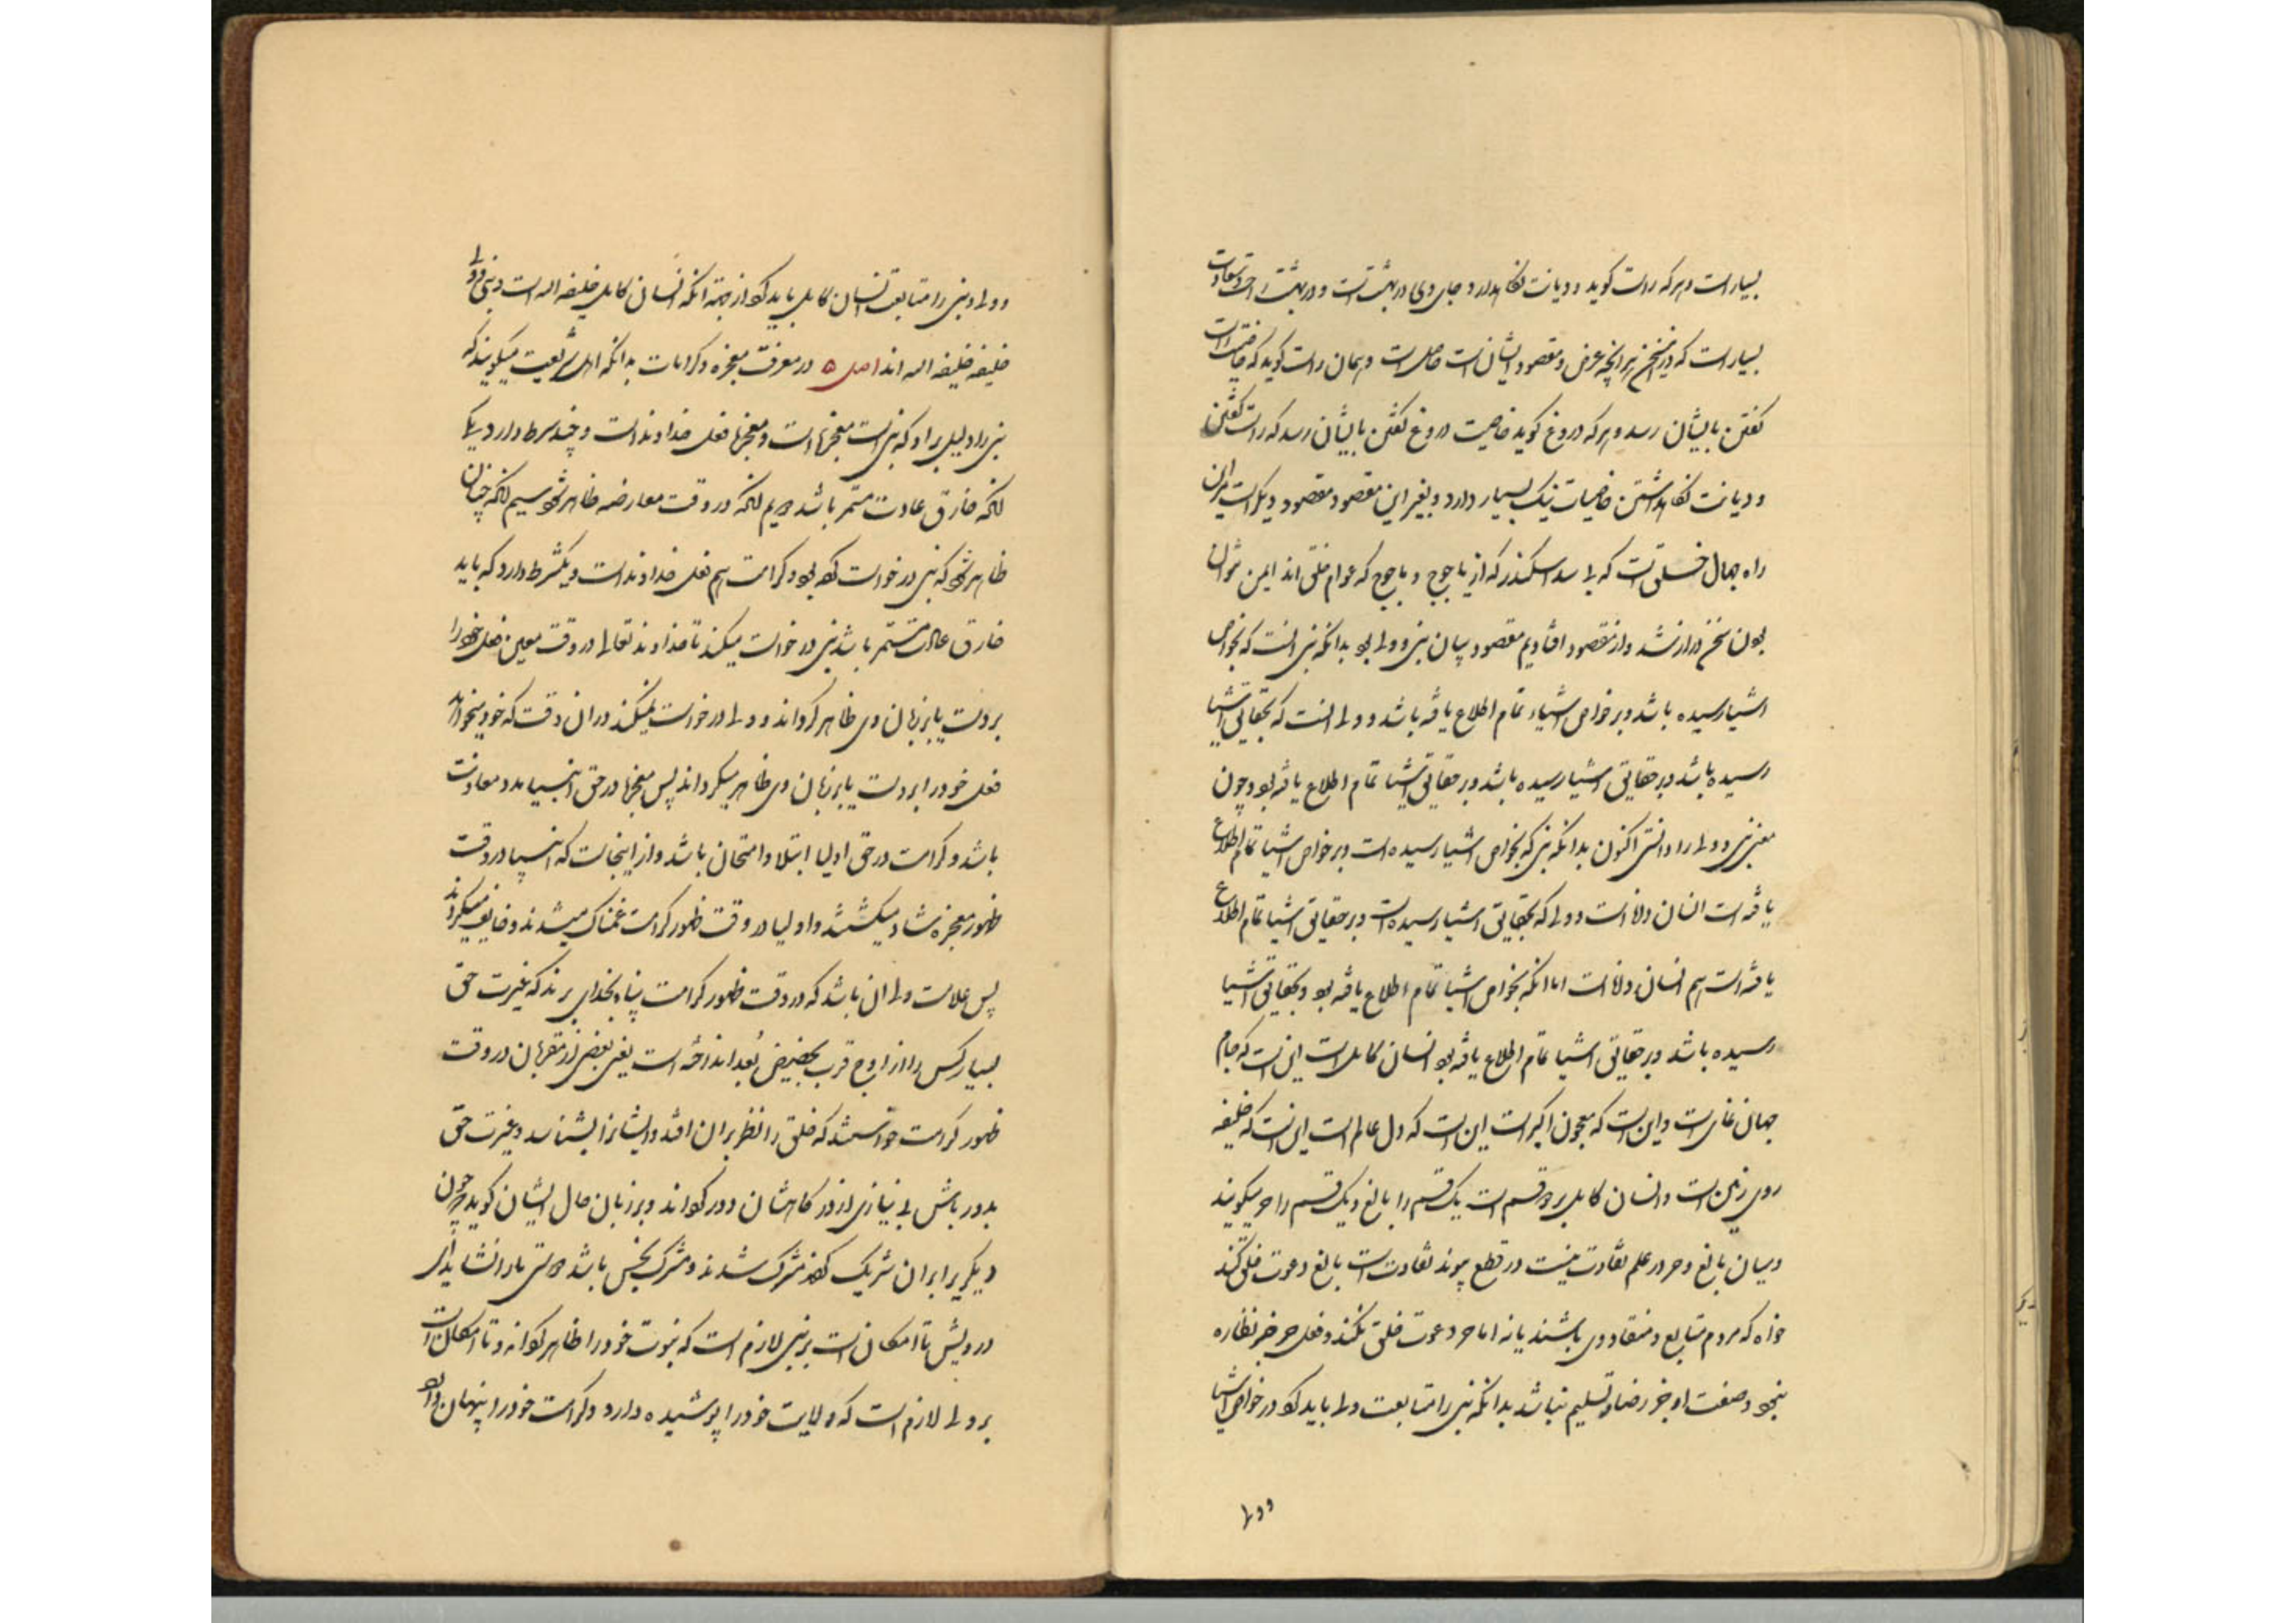 بسیار است و هر که راست گوید و دیانت نگاهدارد و جای وی در بهشت است و در بهشت راحت و سعادت
بسیار است که در سخن هر انچه غرض و مقصود ایشانست حاصل است و همان راست گوید که خاصیت راست
گفتن بایشان رسد و هر که دروغ گوید خاصیت دروغ گفتن بایشان رسد که راست گفتن
و دیانت نگاهداشتن خاصیات نیک بسیار دارد و بغیر این مقصود مقصود دیگر است بدان
راه جهال خلق است که بی سد اسکندر که از یاجوج و ماجوج که عوام خلق اند ایمن نتوان
بودن سخن دراز شد و از مقصود افتادیم مقصود بیان نبی و ولی بود بدانکه نبی انست که بخواص
اشیا رسیده باشد و بر خواص اشیاء تمام اطلاع یافته باشد و ولی انست که بحقایق اشیا
رسیده باشد و بر حقایق اشیا رسیده باشد و بر حقایق اشیا تمام اطلاع یافته بود و چون
معنی نبی و ولی را دانستی اکنون بدانکه نبی که بخواص اشیا رسیده است و بر خواص اشیا تمام اطلاع
یافته است انسان داناست و ولی که بحقایق اشیا رسیده است و بر حقایق اشیا تمام اطلاع
یافته است هم انسان داناست اما انکه بخواص اشیا تمام اطلاع یافته بود و بحقایق اشیا
رسیده باشد و بر حقایق اشیا تمام اطلاع یافته بود انسان کامل است این است که جام
جهان نمای است و این است که معجون اکبر است این است که دل عالم است این است که خلیفه
روی زمین است و انسان کامل بر دو قسم است یک قسم را بالغ و یک قسم را حر میگویند
و میان بالغ و حر در علم تفاوت نیست در قطع پیوند تفاوت است بالغ دعوت خلق کند
خواه که مردم متابع و منقاد وی باشند یا نه اما حر دعوت خلق نکند و فعل حر جز نظاره
نبود و صفت او جز رضا و تسلیم نباشد بدانکه نبی را متابعت ولی باید کرد در خواص اشیا
و ولی
و ولی و نبی را متابعت انسان کامل باید کرد از جهة انکه انسان کامل خلیفه الله است و نبی و ولی
خلیفه خلیفه الله اند اصل ۵ در معرفت معجزه و کرامات بدانکه اهل شریعت میگویند که
نبی را دلیل بر او که نبی است معجزها است و معجزها فعل خداوند است و چند شرط دارد یکی
انکه خارق عادت مستمر باشد دویم انکه در وقت معارضه ظاهر شود سیم انکه چنان
ظاهر شود که نبی درخواست کرده بود و کرامت هم فعل خداوند است و یکشرط دارد که باید
خارق عادت مستمر باشد نبی درخواست میکند تا خداوند تعالی در وقت معین فعل خود را
بر دست یا بر زبان وی ظاهر گرداند و ولی درخواست نمیکند در ان وقت که خود میخواهد
فعل خود را بر دست یا بر زبان وی ظاهر میگرداند پس معجزها در حق انبیا مدد و معاونت
باشد و کرامت در حق اولیا ابتلا و امتحان باشد و از اینجاست که انبیا در وقت
ظهور معجزه شاد میگشتند و اولیا در وقت ظهور کرامت غمناک میشدند و خایف میگردند
پس علامت ولی ان باشد که در وقت ظهور کرامت پناه بخدای برند که غیرت حق
بسیار کس را از اوج قرب بحضیض بُعد انداخته است یعنی بعضی از مقربان در وقت
ظهور کرامت خواستند که خلق را نظر بر ان افتد و ایشانرا بشناسد و غیرت حق
بدور باش بی نیازی از درگاهشان دور گرداند و بر زبان حال ایشان گوید چون
دیگری بر ایران شریک کردند مشرک شدند و مشرک نجس باشد دوستی ما را نشاید ای
درویش تا امکان است بر نبی لازم است که نبوت خود را ظاهر گرداند و تا امکان است
بر ولی لازم است که ولایت خود را پوشیده دارد و کرامت خود را پنهان دارد